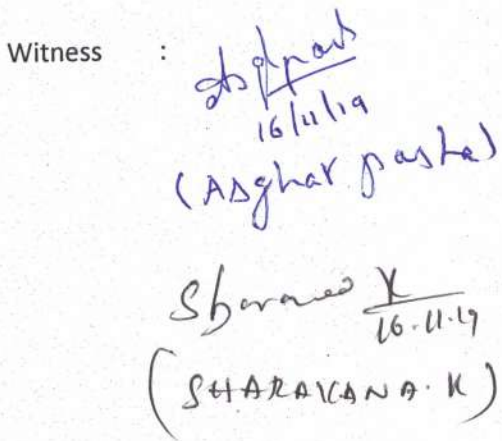 Witness :
16/11/19
(Asghar pasha)
16.11.19
(SHARAVANA.K)